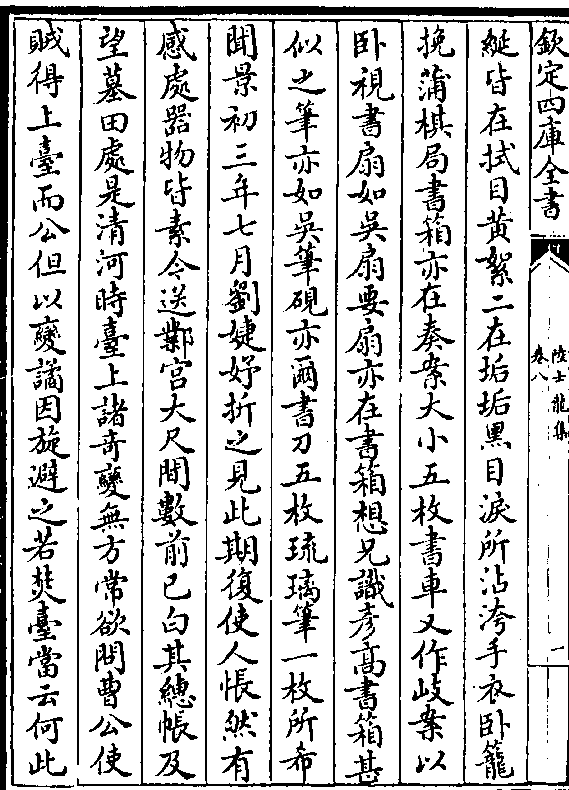 欽定四庫全書
陸士龍集
卷八
一
綖皆在拭目黄絮二在垢垢黒目淚所沾洿手衣卧籠
挽蒲棋局書箱亦在奏案大小五枚書車又作歧案以
卧視書扇如吳扇要扇亦在書箱想兄識彦高書箱甚
似之筆亦如吳筆硯亦爾書刀五枚琉璃筆一枚所希
聞景初三年七月劉婕妤折之見此期復使人悵然有
感處器物皆素今送鄴宫大尺間數前已白其繐帳及
望墓田處是清河時臺上諸奇變無方常欲問曹公使
賊得上臺而公但以變譎因旋避之若焚臺當云何此